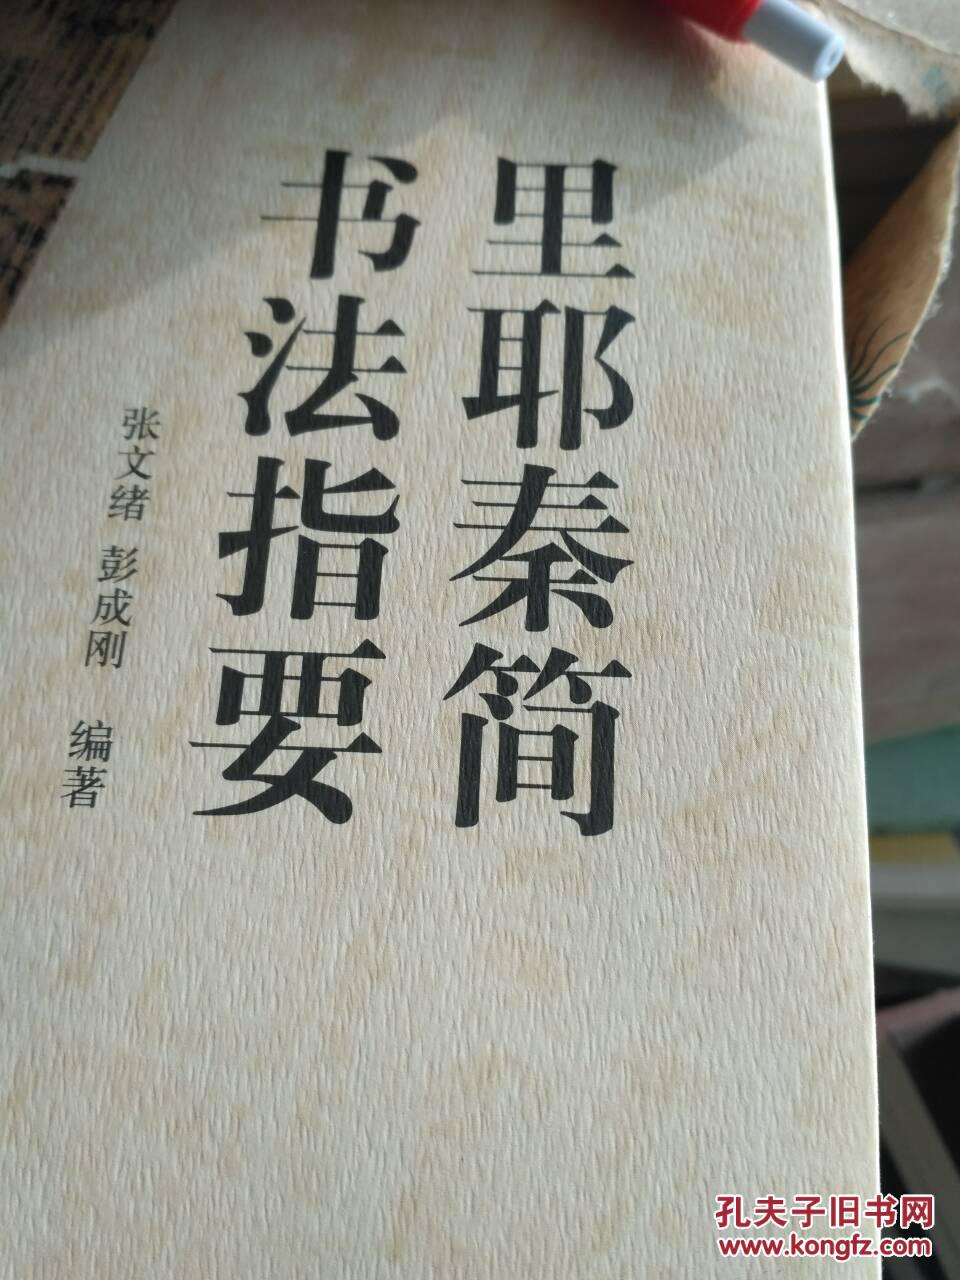 里耶秦简
书法指要
张文绪 彭成刚 编著
孔夫子旧书网
www.kongfz.com